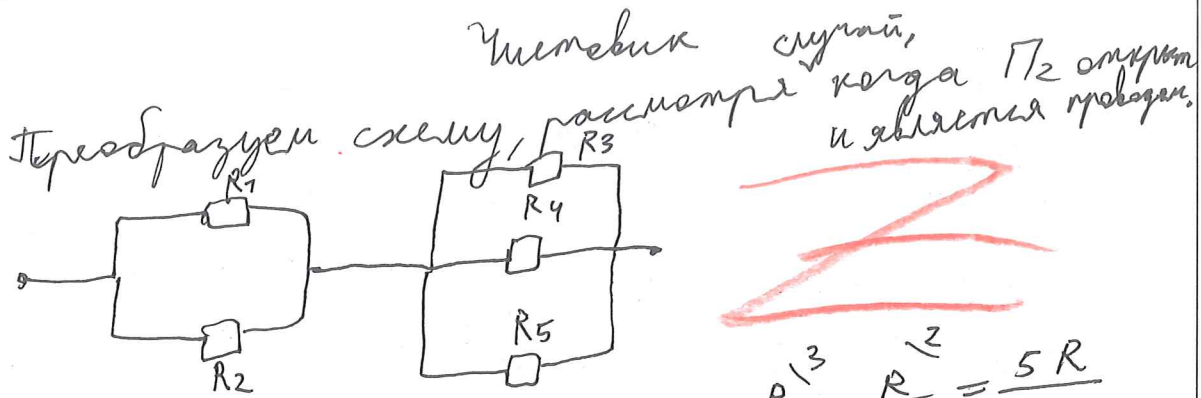 Чистовик случай,
Преобразуем схему, рассмотря когда П2 открыт
и является проводом.
R1
R2
R3
R4
R5
R\3 R\2 = 5R